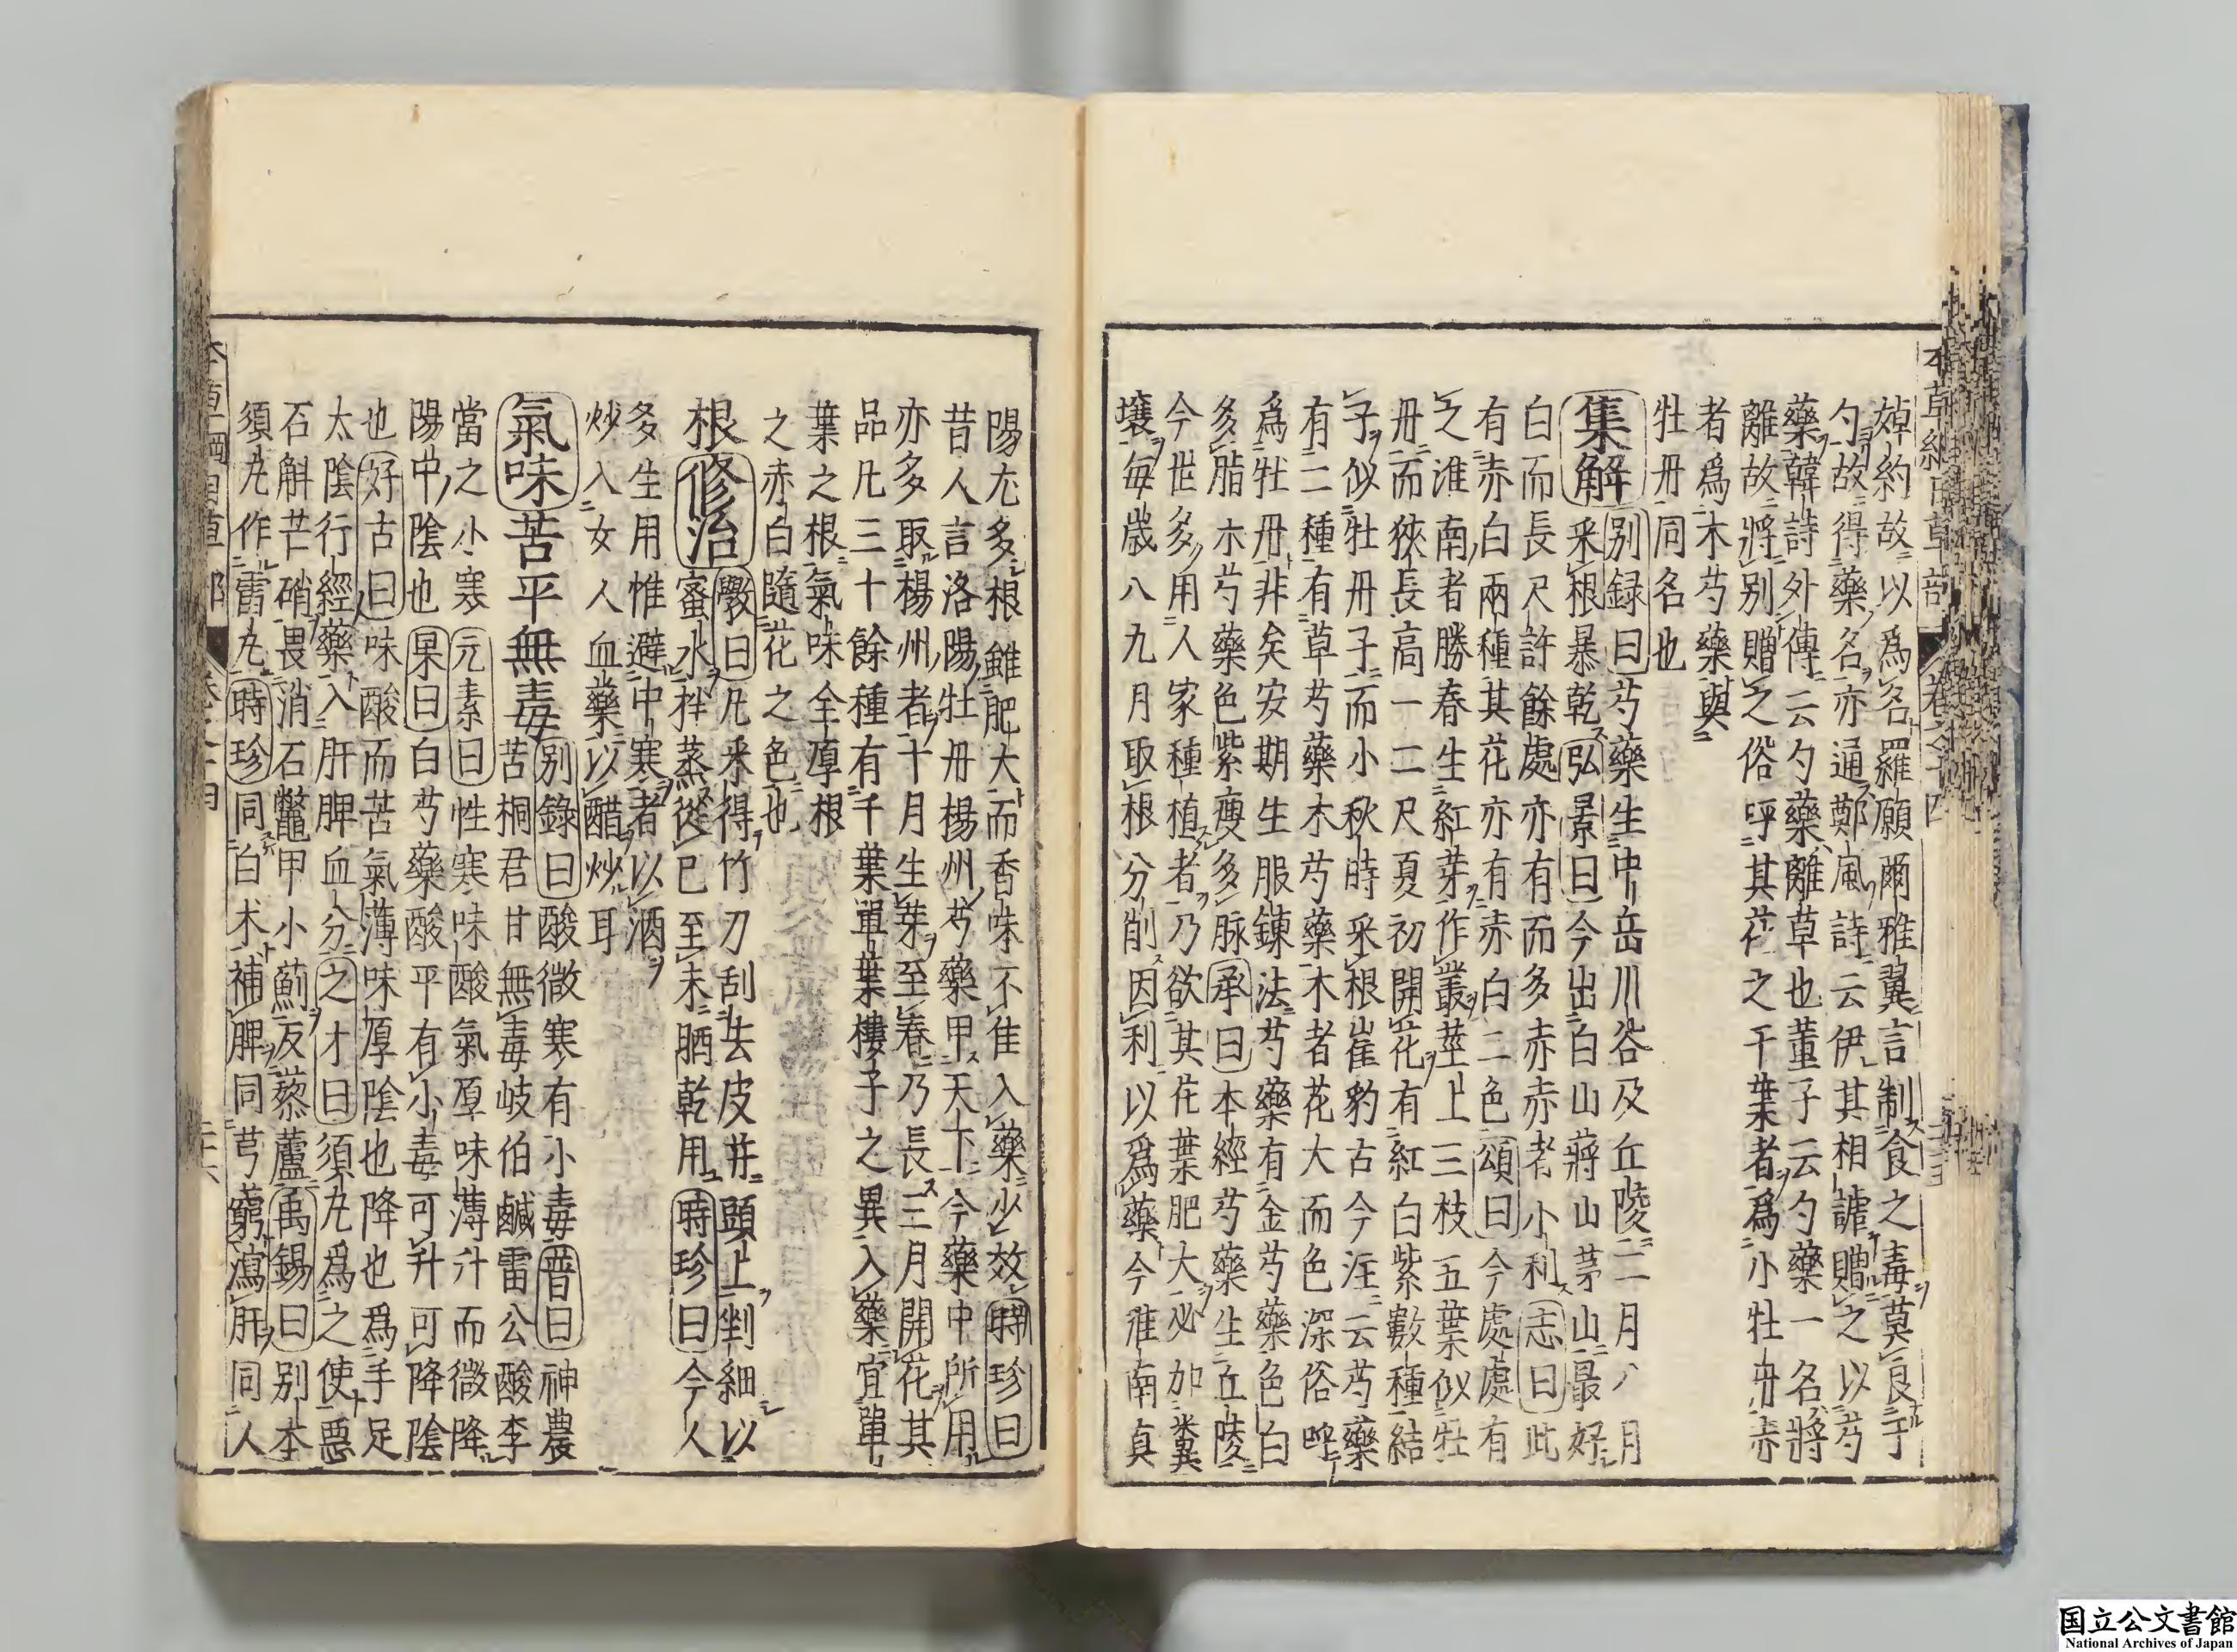 婥約故以爲名羅願爾雅翼言制食之毒莫良于
勺故得藥名亦通鄭風詩云伊其相謔贈之以芍
藥韓詩外傳云勺藥離草也董子云勺藥一名將
離故將別贈之俗呼其花之千葉者爲小牡丹赤
者爲木芍藥與
牡丹同名也
集解別録曰芍藥生中岳川谷及丘陵二月八月
采根暴乾弘景曰今出白山蔣山茅山最好
白而長尺許餘處亦有而多赤赤者小利志曰此
有赤白兩種其花亦有赤白二色頌曰今處處有
之淮南者勝春生紅芽作叢莖上三枝五葉似牡
丹而狹長高一二尺夏初開花有紅白紫數種結
子似牡丹子而小秋時采根崔豹古今注云芍藥
有二種有草芍藥木芍藥木者花大而色深俗呼
爲牡丹非矣安期生服鍊法芍藥有二金芍藥色白
多脂木芍藥色紫瘦多脉承曰本經芍藥生丘陵
今世多用人家種植者乃欲其花葉肥大必加糞
壤每歲八九月取根分削因利以爲藥今淮南真
陽尤多根雖肥大而香味不佳入藥少效時珍曰
昔人言洛陽牡丹楊州芍藥甲天下今藥中所用
亦多取楊州者十月生芽至春乃長三月開花其
品凡三十餘種有千葉單葉樓子之異入藥宜單
葉之根氣味全厚根
之赤白隨花之色也
根修治斅曰凡采得竹刀刮去皮并頭土剉細以
蜜水拌蒸從巳至未晒乾用時珍曰今人
多生用惟避中寒者以酒
炒入女人血藥以醋炒耳
氣味苦平無毒別錄曰酸微寒有小毒普曰神農
苦桐君甘無毒岐伯鹹雷公酸李
當之小寒元素曰性寒味酸氣厚味薄升而微降
陽中陰也杲曰白芍藥酸平有小毒可升可降陰
也好古曰味酸而苦氣薄味厚陰也降也爲手足
太陰行經藥入肝脾血分之才曰須丸爲之使惡
石斛芒硝畏消石鼈甲小薊反藜蘆禹錫曰別本
須丸作雷丸時珍同白术補脾同芎藭瀉肝同人
国立公文書館
National Archives of Japan